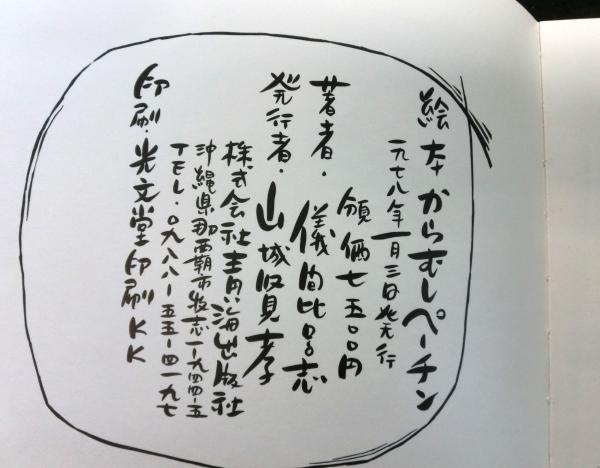 絵本からむしペーチン
一九七八年一月三日発行
領価七五〇〇円
著者・儀間比呂志
発行者・山城賢孝
株式会社青い海出版社
沖縄県那覇市牧志一ー九四四ー五
TEL・〇九八八ー五五ー四一九七
印刷・光文堂印刷KK